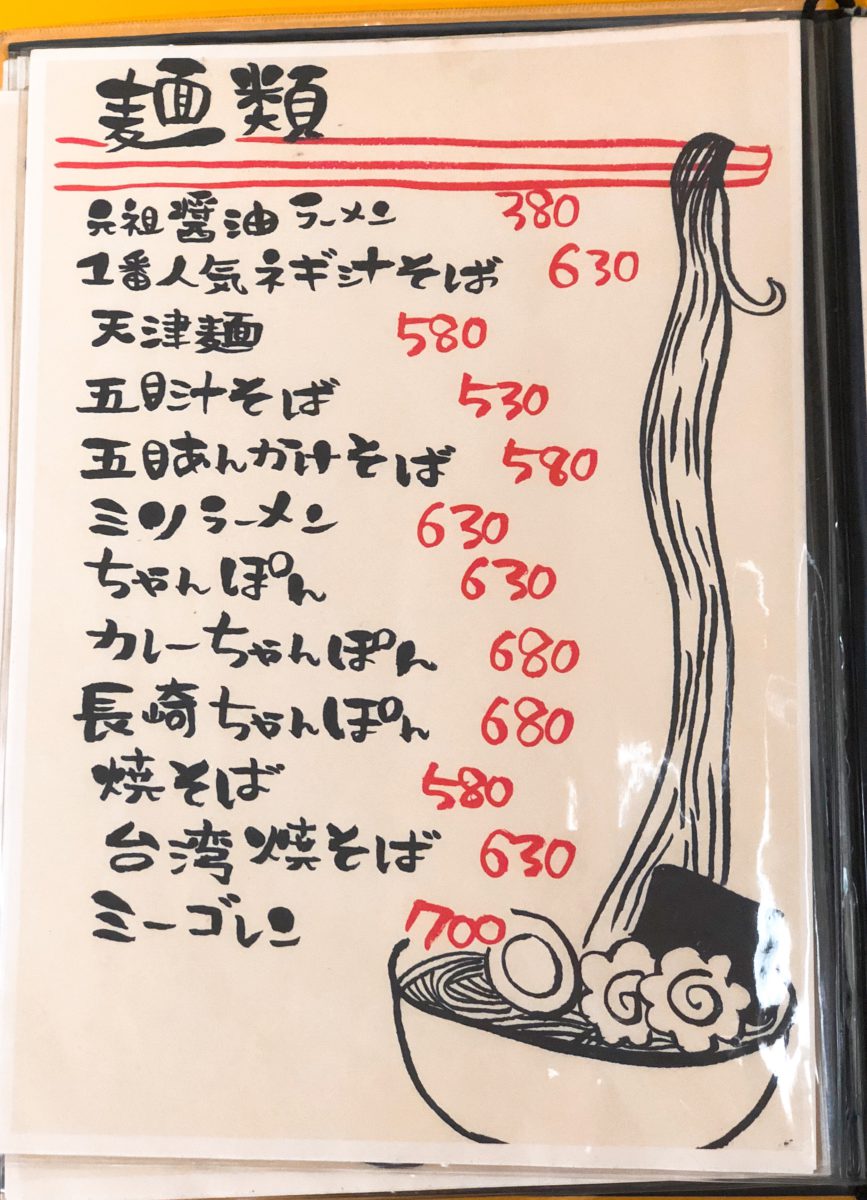 麺類
元祖醤油ラーメン 380
1番人気ネギ汁そば 630
天津麺 580
五目汁そば 530
五目あんかけそば 580
ミソラーメン 630
ちゃんぽん 630
カレーちゃんぽん 680
長崎ちゃんぽん 680
焼そば 580
台湾焼そば 630
ミーゴレン 700